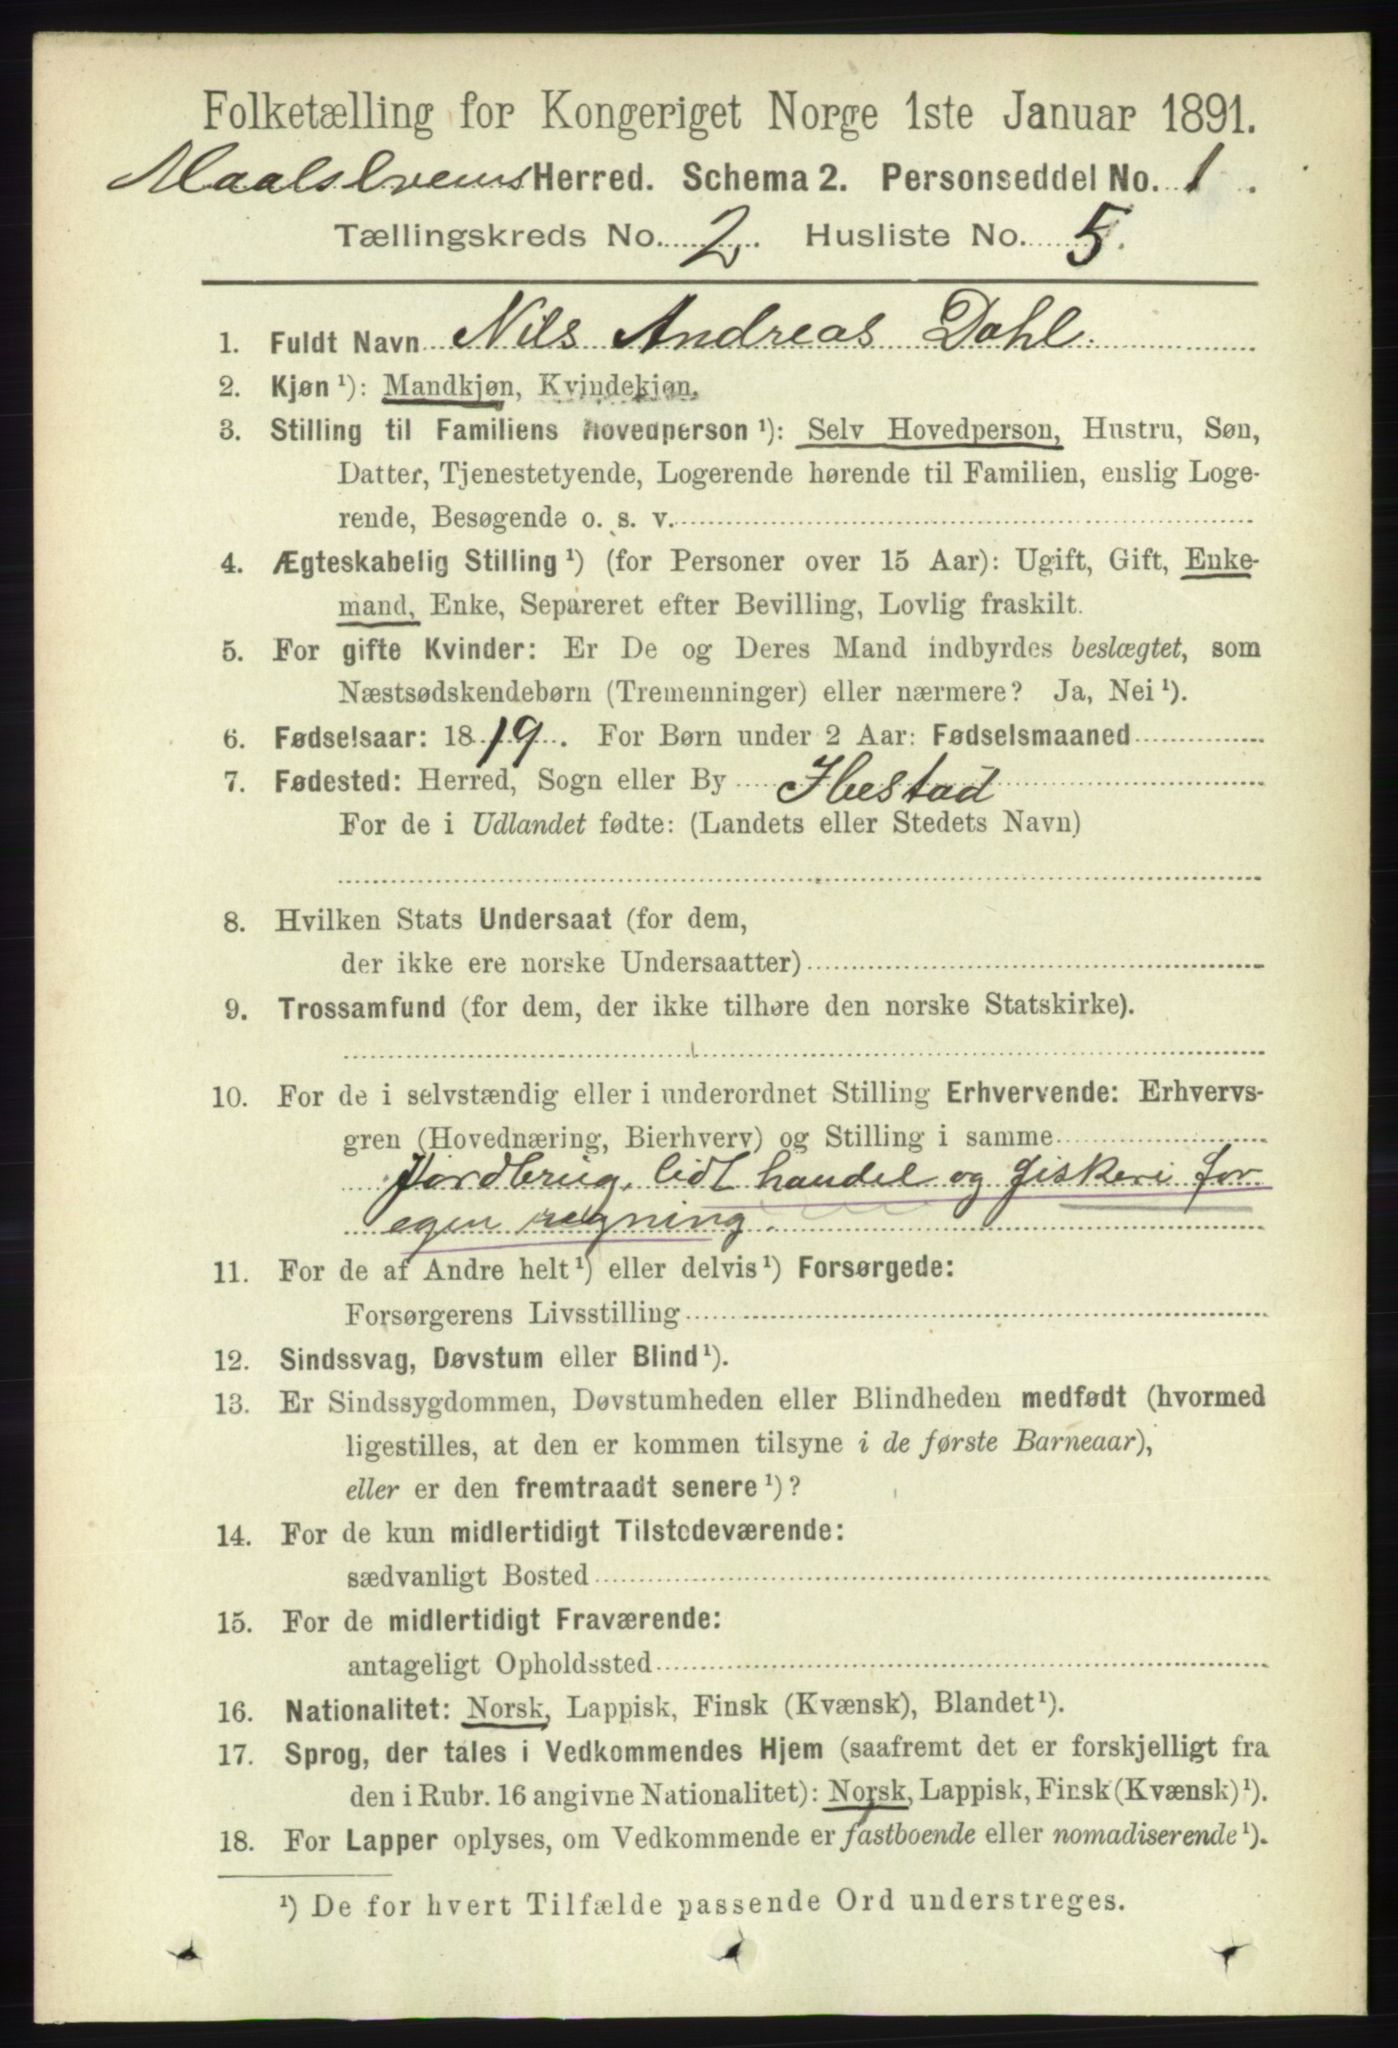 Folketælling for Kongeriget Norge 1ste Januar 1891.
Maalselvens Herred. Schema 2. Personseddel No. 1.
Tællingskreds No. 2. Husliste No. 5.
1. Fuldt Navn Nils Andreas Dahl.
2. Kjøn ¹): Mandkjøn, Kvindekjøn.
3. Stilling til Familiens Hovedperson ¹): Selv Hovedperson, Hustru, Søn,
Datter, Tjenestetyende, Logerende hørende til Familien, enslig Loge-
rende, Besøgende o. s. v.
4. Ægteskabelig Stilling ¹) (for Personer over 15 Aar): Ugift, Gift, Enke-
mand, Enke, Separeret efter Bevilling, Lovlig fraskilt.
5. For gifte Kvinder: Er De og Deres Mand indbyrdes beslægtet, som
Næstsødskendebørn (Tremenninger) eller nærmere? Ja, Nei ¹).
6. Fødselsaar: 1819. For Børn under 2 Aar: Fødselsmaaned
7. Fødested: Herred, Sogn eller By Ibestad
For de i Udlandet fødte: (Landets eller Stedets Navn)
8. Hvilken Stats Undersaat (for dem,
der ikke ere norske Undersaatter)
9. Trossamfund (for dem, der ikke tilhøre den norske Statskirke).
10. For de i selvstændig eller i underordnet Stilling Erhvervende: Erhvervs-
gren (Hovednæring, Bierhverv) og Stilling i samme
Jordbrug, lidt handel og fiskeri for
egen regning.
11. For de af Andre helt ¹) eller delvis ¹) Forsørgede:
Forsørgerens Livsstilling
12. Sindssvag, Døvstum eller Blind ¹).
13. Er Sindssygdommen, Døvstumheden eller Blindheden medfødt (hvormed
ligestilles, at den er kommen tilsyne i de første Barneaar),
eller er den fremtraadt senere ¹)?
14. For de kun midlertidigt Tilstedeværende:
sædvanligt Bosted
15. For de midlertidigt Fraværende:
antageligt Opholdssted
16. Nationalitet: Norsk, Lappisk, Finsk (Kvænsk), Blandet ¹).
17. Sprog, der tales i Vedkommendes Hjem (saafremt det er forskjelligt fra
den i Rubr. 16 angivne Nationalitet): Norsk, Lappisk, Finsk (Kvænsk) ¹).
18. For Lapper oplyses, om Vedkommende er fastboende eller nomadiserende ¹).
¹) De for hvert Tilfælde passende Ord understreges.